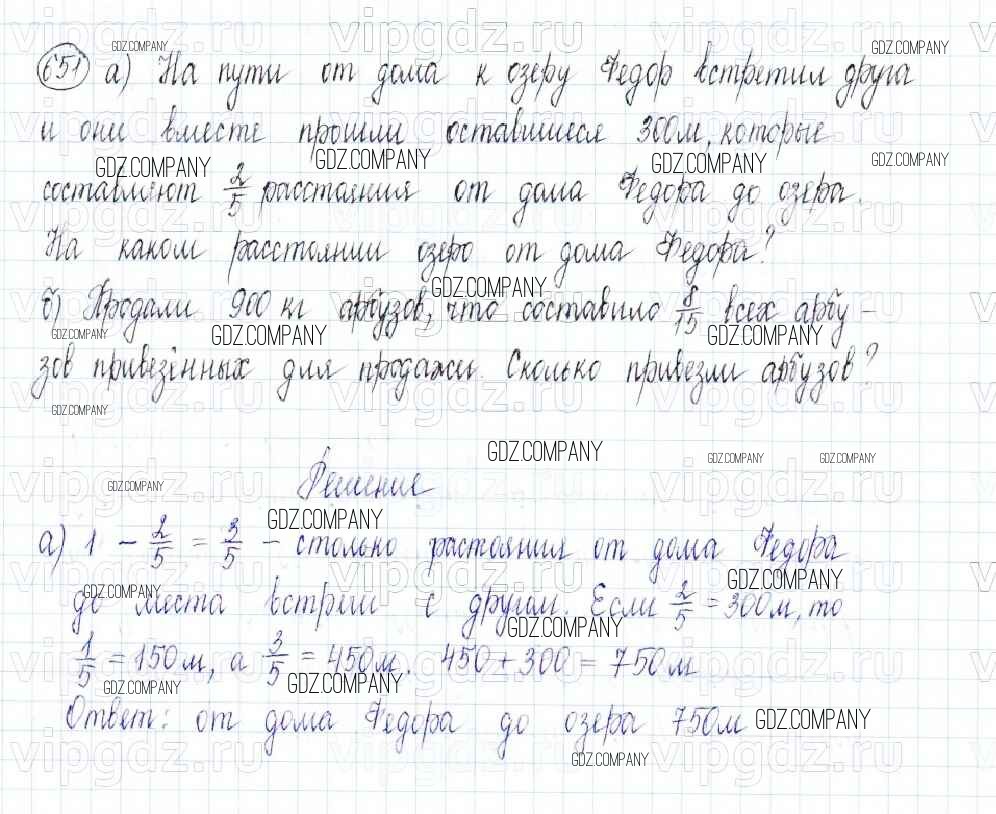 651 а) На пути от дома к озеру Федор встретил друга
и они вместе прошли оставшиеся 300м, которые
составляют 2/5 расстояния от дома Федора до озера.
На каком расстоянии озеро от дома Федора?
б) Продали 900 кг арбузов, что составило 8/15 всех арбу-
зов привезённых для продажи. Сколько привезли арбузов?
Решение
а) 1 - 2/5 = 3/5 - столько растояния от дома Федора
до места встречи с другом. Если 2/5 = 300м, то
1/5 = 150м, а 3/5 = 450м. 450 + 300 = 750м
Ответ: от дома Федора до озера 750м
GDZ.COMPANY
vipgdz.ru